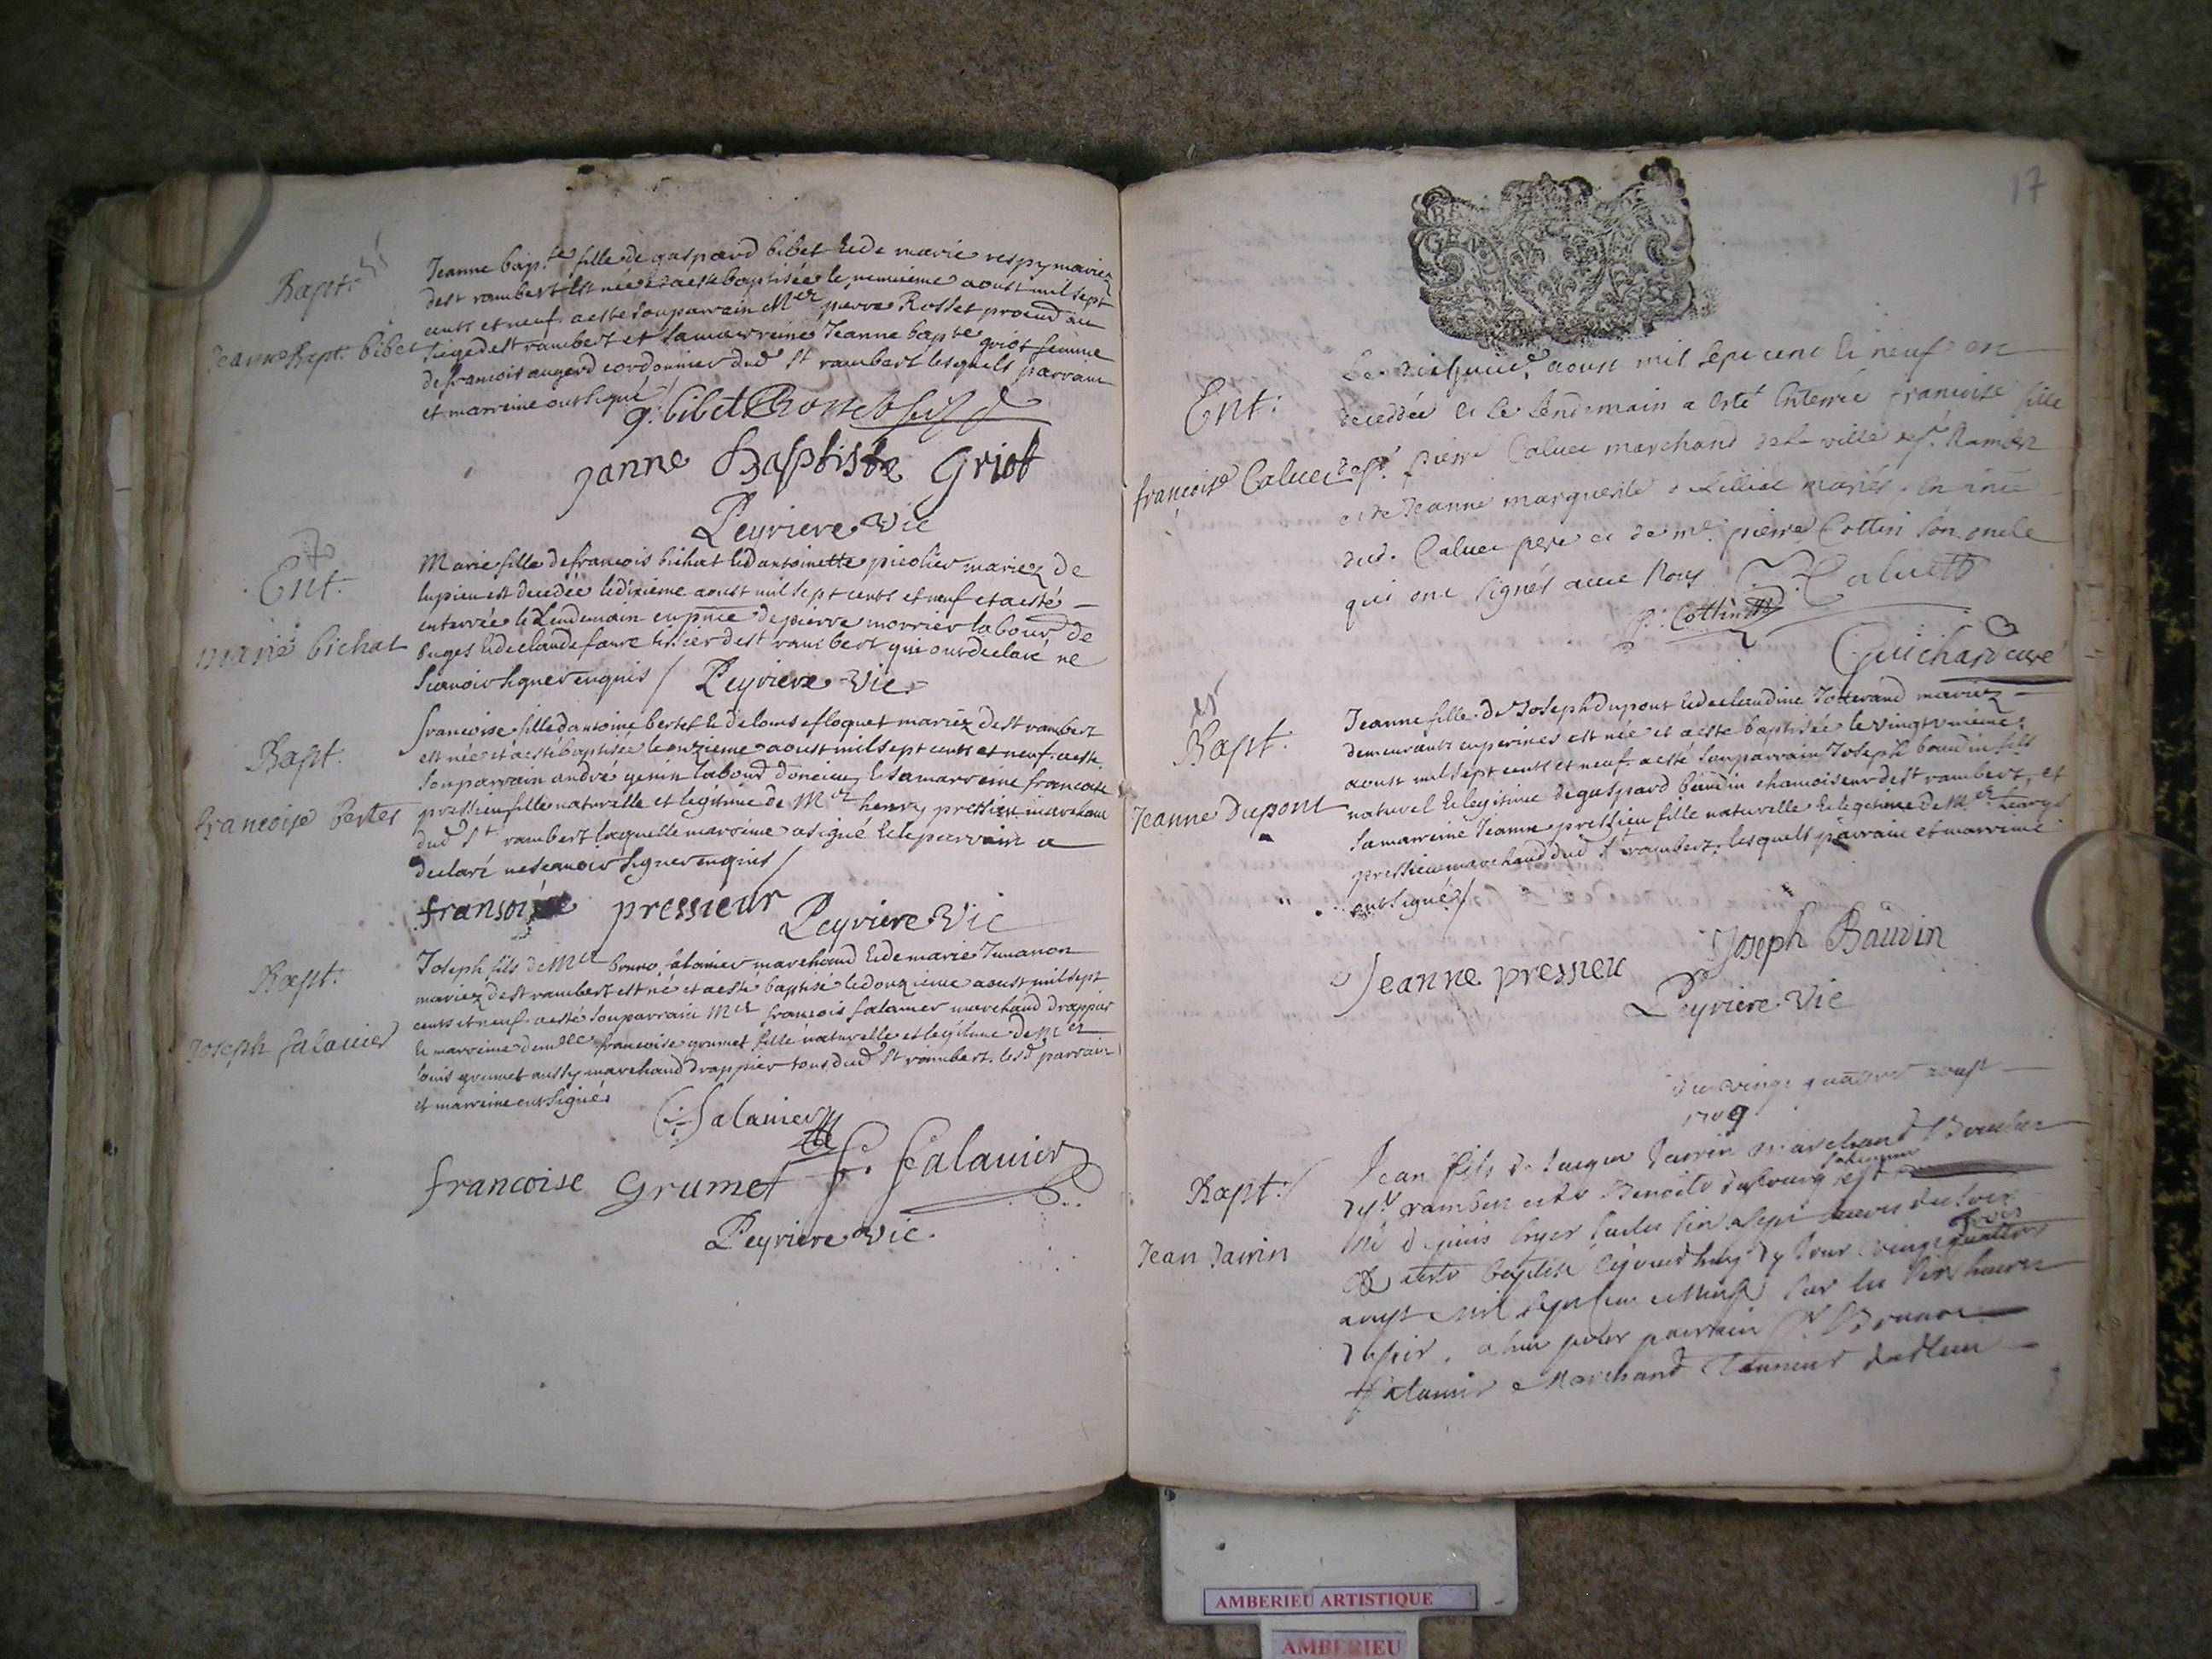 Bapt.
Jeanne Bapt. bibet
Jeanne bap.te fille de gaspard bibet et de marie respy mariez
de st rambert est née et a esté baptisée le neuvieme aoust mil sept
cents et neuf. a esté son parrain Mer pierre Rosset procud au
siege de st rambert et sa marreine Jeanne bapte griot femme
de francois augerd cordonnier dud St rambert lesquels parrain
et marreine ont signé
g. bibet
janne Baptiste Griot
Peyriere Vic
Ent.
marie bichat
Marie fille de francois bichat et d antoinette picolier mariez de
lupieu est decedée le dixieme aoust mil sept cents et neuf et a esté
enterrée le Lendemain en pnce de pierre morrier labour de
buges et de claude faure de st rambert qui ont declaré ne
scavoir signer enquis / Peyriere Vic
Bapt.
francoise bertet
francoise fille d antoine bertet et de louise floquet mariez de st rambert
est née et a esté baptisée le onzieme aoust mil sept cents et neuf. a esté
son parrain andré genin labour d oncieu et sa marreine francoise
pressieu fille naturelle et legitime de Mer henry pressieu marchand
dud St rambert laquelle marreine a signé et le parrain a
declaré ne scavoir signer enquis /
fransoise pressieur Peyriere Vic
Bapt.
Joseph falavier
Joseph fils de Mer bruno falavier marchand et de marie Juvanon
mariez de st rambert est né et a esté baptisé le douzieme aoust mil sept
cents et neuf. a esté son parrain Mer francois falavier marchand drappier
et marreine demlle francoise grumet fille naturelle et legitime de Mer
louis grumet aussy marchand drappier tous dud St rambert. lesd parrain
et marreine ont signé
falavier
francoise Grumet f. falavier
Peyriere Vic.
17
GEN
Ent.
françoise Caluet
Le aoust mil sept cent et neuf est
decedée et le lendemain a esté enterrée françoise fille
de sr pierre Caluet marchand de la ville de st. Rambert
et de Jeanne marguerite mariés. en pnce
dud. Caluet pere et de me. pierre Cottin son oncle
qui ont signés avec Nous Caluet
P. Cottin
Guichard curé
Bapt.
Jeanne Dupont
Jeanne fille de Joseph Dupont et de claudine mariez
demeurants en permes est née et a esté baptisée le vingt unieme
aoust mil sept cents et neuf. a esté son parrain Joseph baudin fils
naturel et legitime de gaspard baudin chamoiseur de st rambert, et
sa marreine Jeanne pressieu fille naturelle et legitime de Mer
pressieu marchand dud St rambert, lesquels parrain et marreine
ont signé /
Joseph Baudin
Jeanne pressieu
Peyriere Vic
Du vingt quatre aoust
1709
Bapt.
Jean Jarrin
Jean fils de Jacque Jarrin marchand
de st rambert et de Benoite dubourg sa femme est
né d depuis hyer sur les sept heures du soir
a esté baptisé ce jourd huy ce jour vingt quattre trois
aoust mil sept cent et neuf sur les six heures
du soir. a heu pour parrain Sr Bruno
falavier Marchand Tanneur dud lieu
AMBERIEU ARTISTIQUE
AMBERIEU